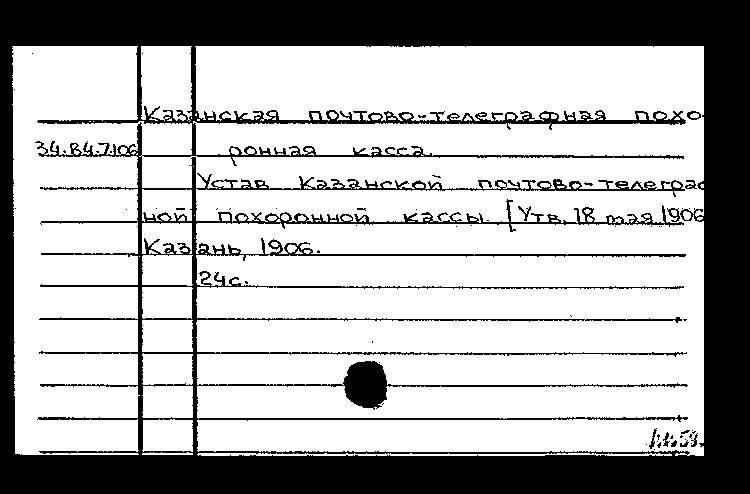 Казанская почтово-телеграфная похо-
34.84.7.106 ронная касса.
Устав Казанской почтово-телеграф
ной похоронной кассы. [Утв. 18 мая 1906
Казань, 1906.
24с.